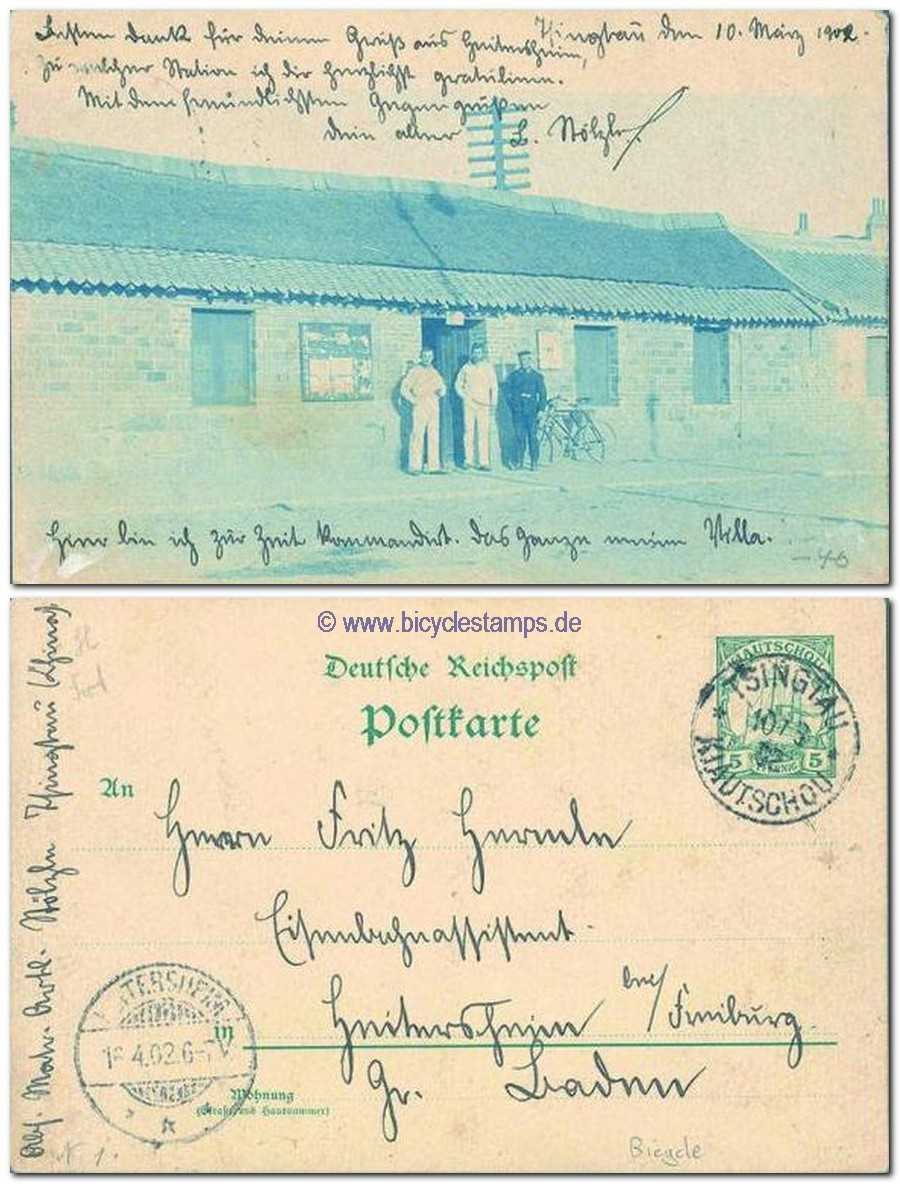 Besten Dank für deinen Gruß aus Heitersheim,
Tsingtau den 10. März 1902.
zu welcher Station ich dir herzlichst gratuliere.
Mit den freundlichsten Gegengrüßen
dein alter
Stölzle
Hier bin ich zur Zeit kommandiert. Das Ganze meine Villa.
© www.bicyclestamps.de
Deutsche Reichspost
Postkarte
KIAUTSCHOU
5 PFENNIG 5
TSINGTAU
10/3
02
KIAUTSCHOU
An
Herrn Fritz Hermle
Eisenbahnassistent
in Heitersheim bei/Freiburg
Gr. Baden
HEITERSHEIM
4.02.6-7
Wohnung
(Straße und Hausnummer)
Stölzle Tsingtau (China)
Bicycle